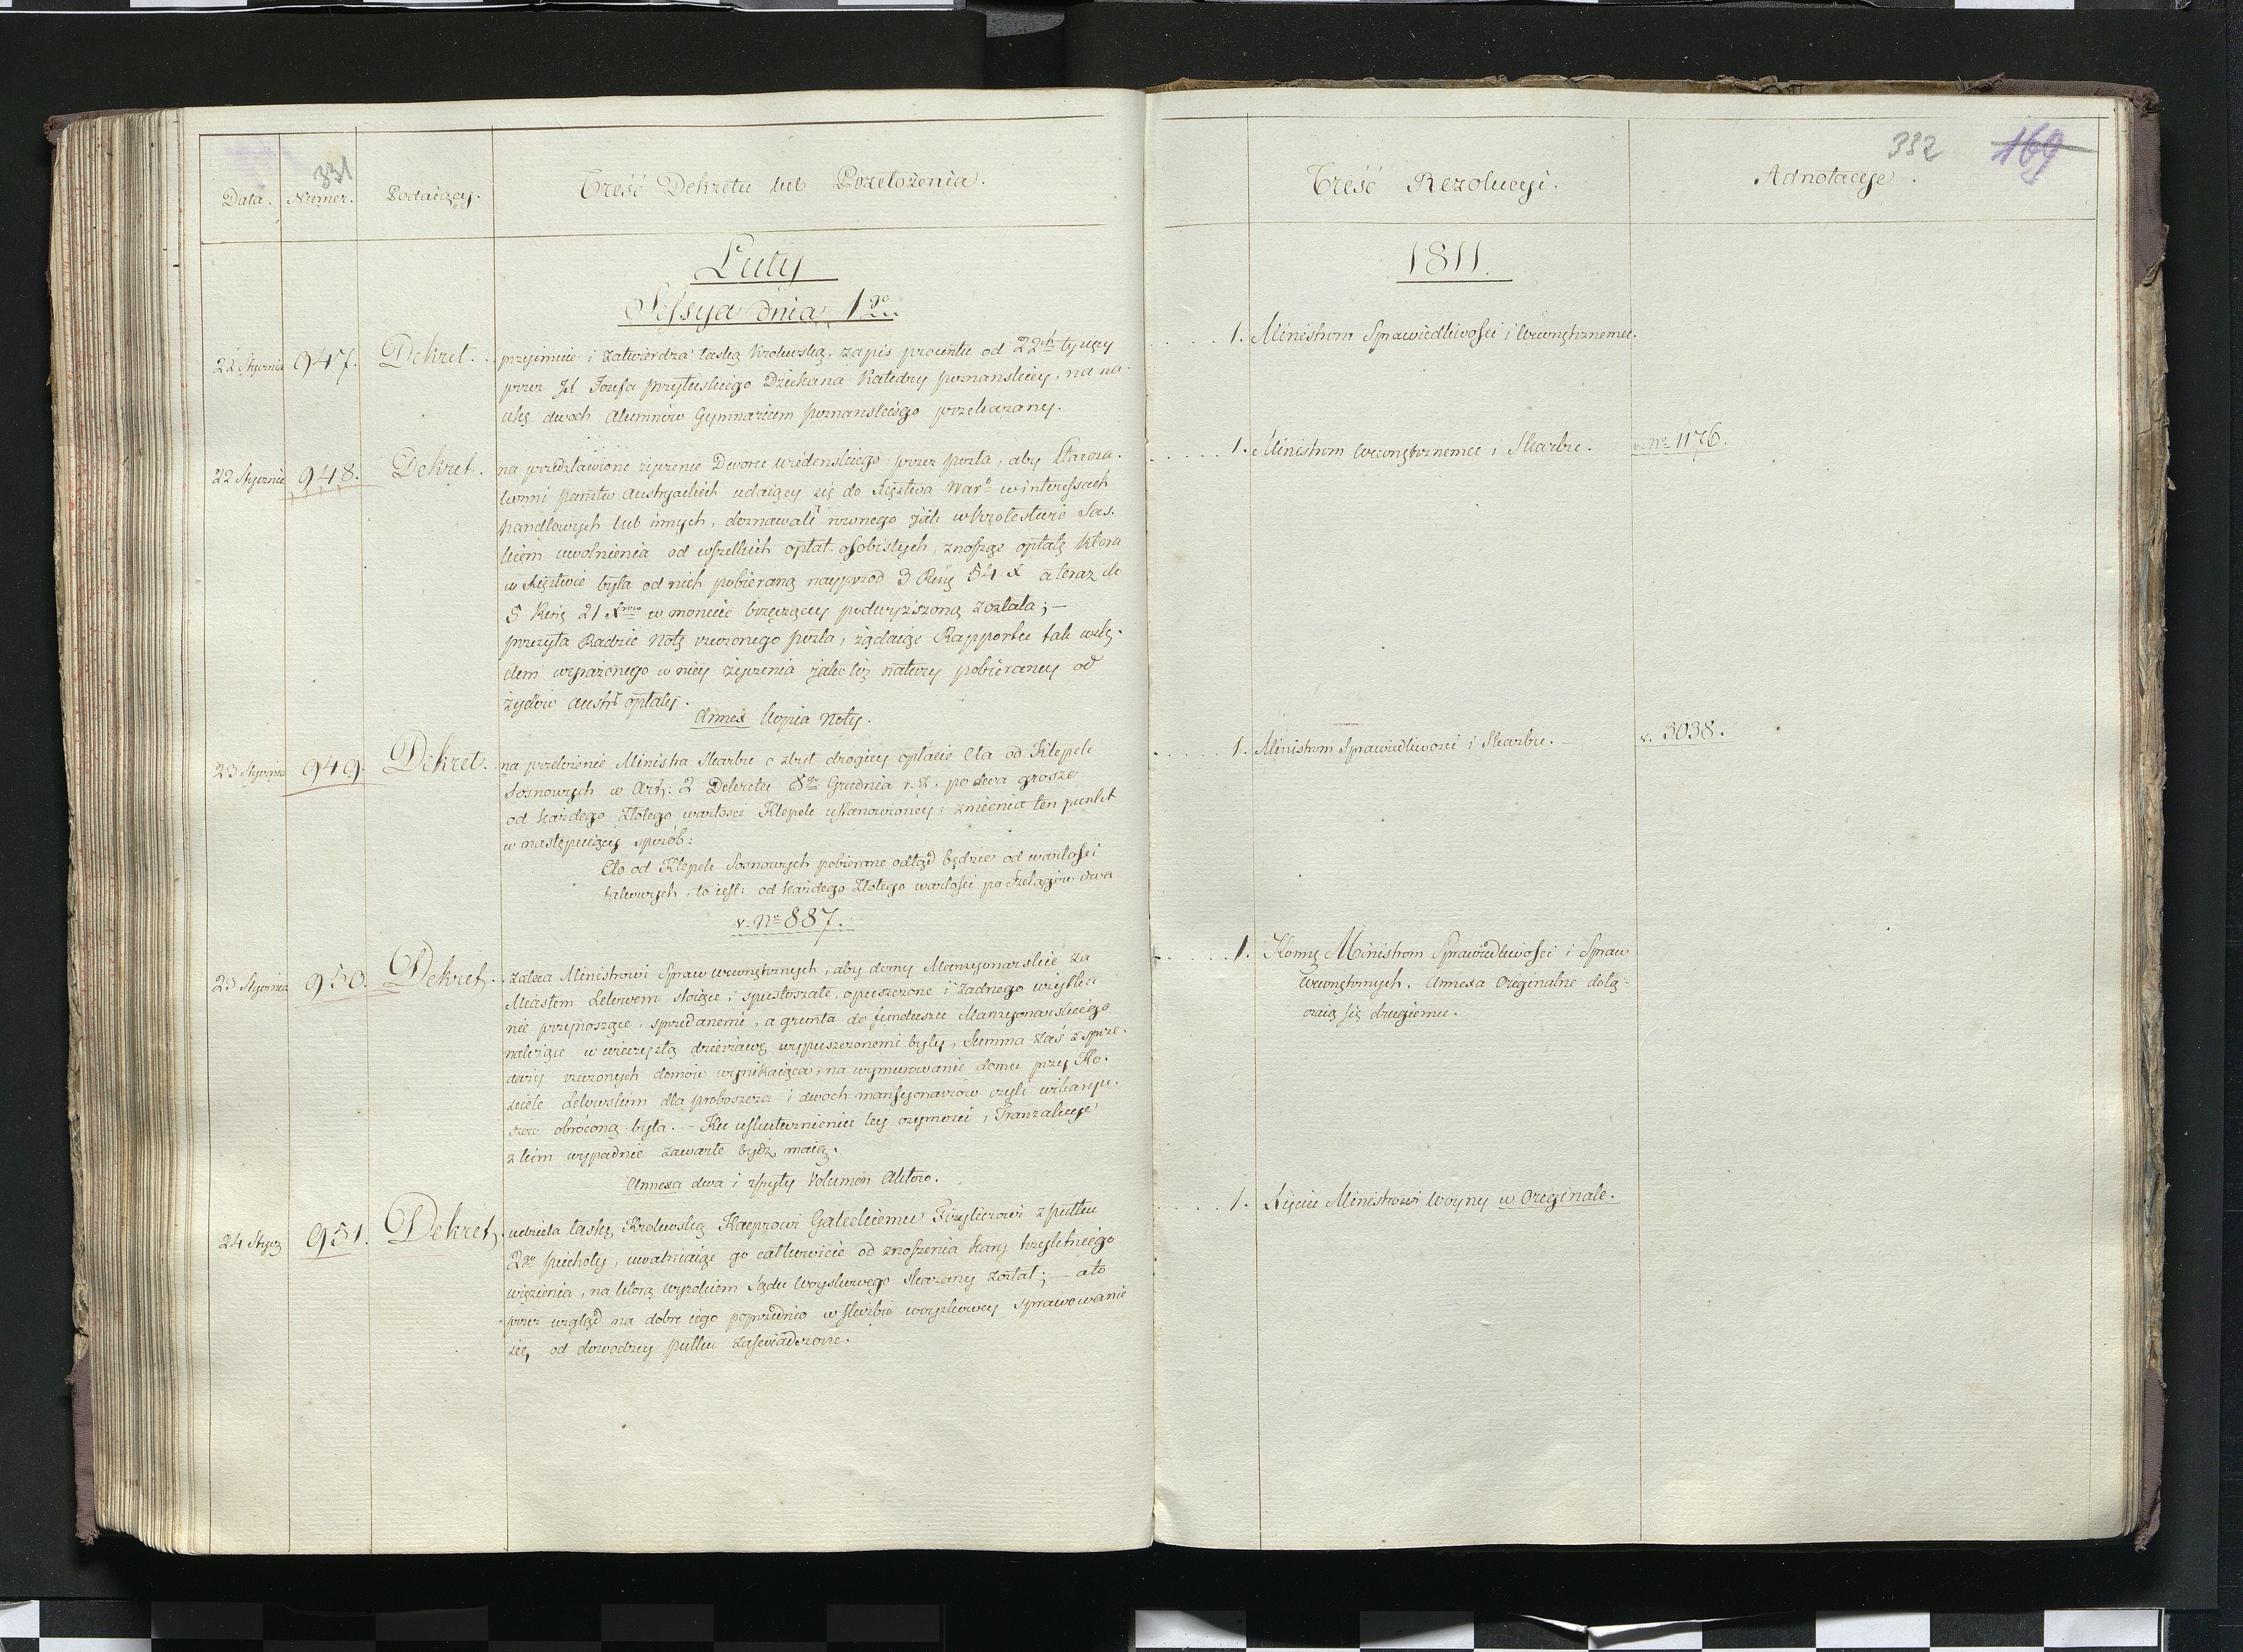 331
Data. Numer. Podaiący. Treść Dekretu lub Przełożenia.
Luty
Sessya dnia 1go
22 Stycznia 947. Dekret. przyimuie i zatwierdza łaską Krolewską, zapis procentu od 22ch tysięcy
przez JX Jozefa Przyłuskiego Dziekana Katedry poznanskiey, na na-
ukę dwoch Alumnów Gymnazium poznanskiego przekazany.
22 Stycznia 948. Dekret. na przedstawione życzenie Dworu wiedenskiego przez posła, aby Staroza-
konni państw Austryackich udaiący się do Xięstwa Waro w interessach
handlowych lub innych, doznawali rownego jak w Krolestwie Sas-
kiem uwolnienia od wszelkich opłat osobistych, znosząc opłatę ktora
w Xięstwie była od nich pobieraną nayprzod 3 Ryń 54 X a teraz do
5 Ryń 21 X w monecie brzęczącey podwyższoną została; —
przesyła Radzie Notę rzeczonego posła, żądaiąc Rapportu tak wzlę-
dem wyrażonego w niey życzenia jako też natury pobieraney od
żydów Austr opłaty.
Annex kopia Noty.
23 Stycznia 949. Dekret. na przełożenie Ministra Skarbu o zbyt drogiey opłacie Cła od Klepek
Sosnowych w Art: 2 Dekretu 8go Grudnia r. z. po dwa grosze
od każdego Złotego wartości Klepek ustanowioney; zmienia ten punkt
w następuiący sposób:
Cło od Klepek Sosnowych pobierane odtąd będzie od wartości
takowych, to iest: od każdego Złotego wartości po Szelągów dwa
v. No 887.
23 Stycznia 950. Dekret. zaleca Ministrowi Spraw wewnętrznych, aby domy Mansyonarskie za
Miastem Lelowem stoiące i spustoszałe, opuszczone i żadnego użytku
nie przynoszące, sprzedanemi, a grunta do funduszu Mansyonarskiego
należące w wieczystą dzierżawę wypuszczonemi były, Summa zaś z sprze-
daży rzeczonych domów wynikaiąca, na wymurowanie domu przy Ko-
ściele Lelowskim dla proboszcza i dwoch mansyonarzów czyli wikaryu-
szów obróconą była. — Ku uskutecznieniu tey czynności, Tranzakcye
z kim wypadnie zawarte bydź maią.
Annexa dwa i zszyty Volumen Aktow.
24 Stycz 951. Dekret. udziela łaskę Krolewską Kacprowi Gałeckiemu Fizylierowi z pułku
2go piechoty, uwalniaiąc go całkowicie od znoszenia kary trzyletniego
więzienia, na ktorą wyrokiem Sądu woyskowego skazany został; — a to
przez wzgląd na dobre iego poprzednio w służbie woyskowey sprawowanie
się, od dowodzcy pułku zaświadczone.
332 169
Treść Rezolucyi. Adnotacye.
1811.
1. Ministrom Sprawiedliwości i Wewnętrznemu.
1. Ministrom Wewnętrznemu i Skarbu. v. No 1176.
1. Ministrom Sprawiedliwości i Skarbu. v. 3038.
1. Kommę Ministrom Sprawiedliwości i Spraw
Wewnętrznych. Annexa Originalne dołą-
czaią się drugiemu.
1. Ministrowi Woyny w Originale.